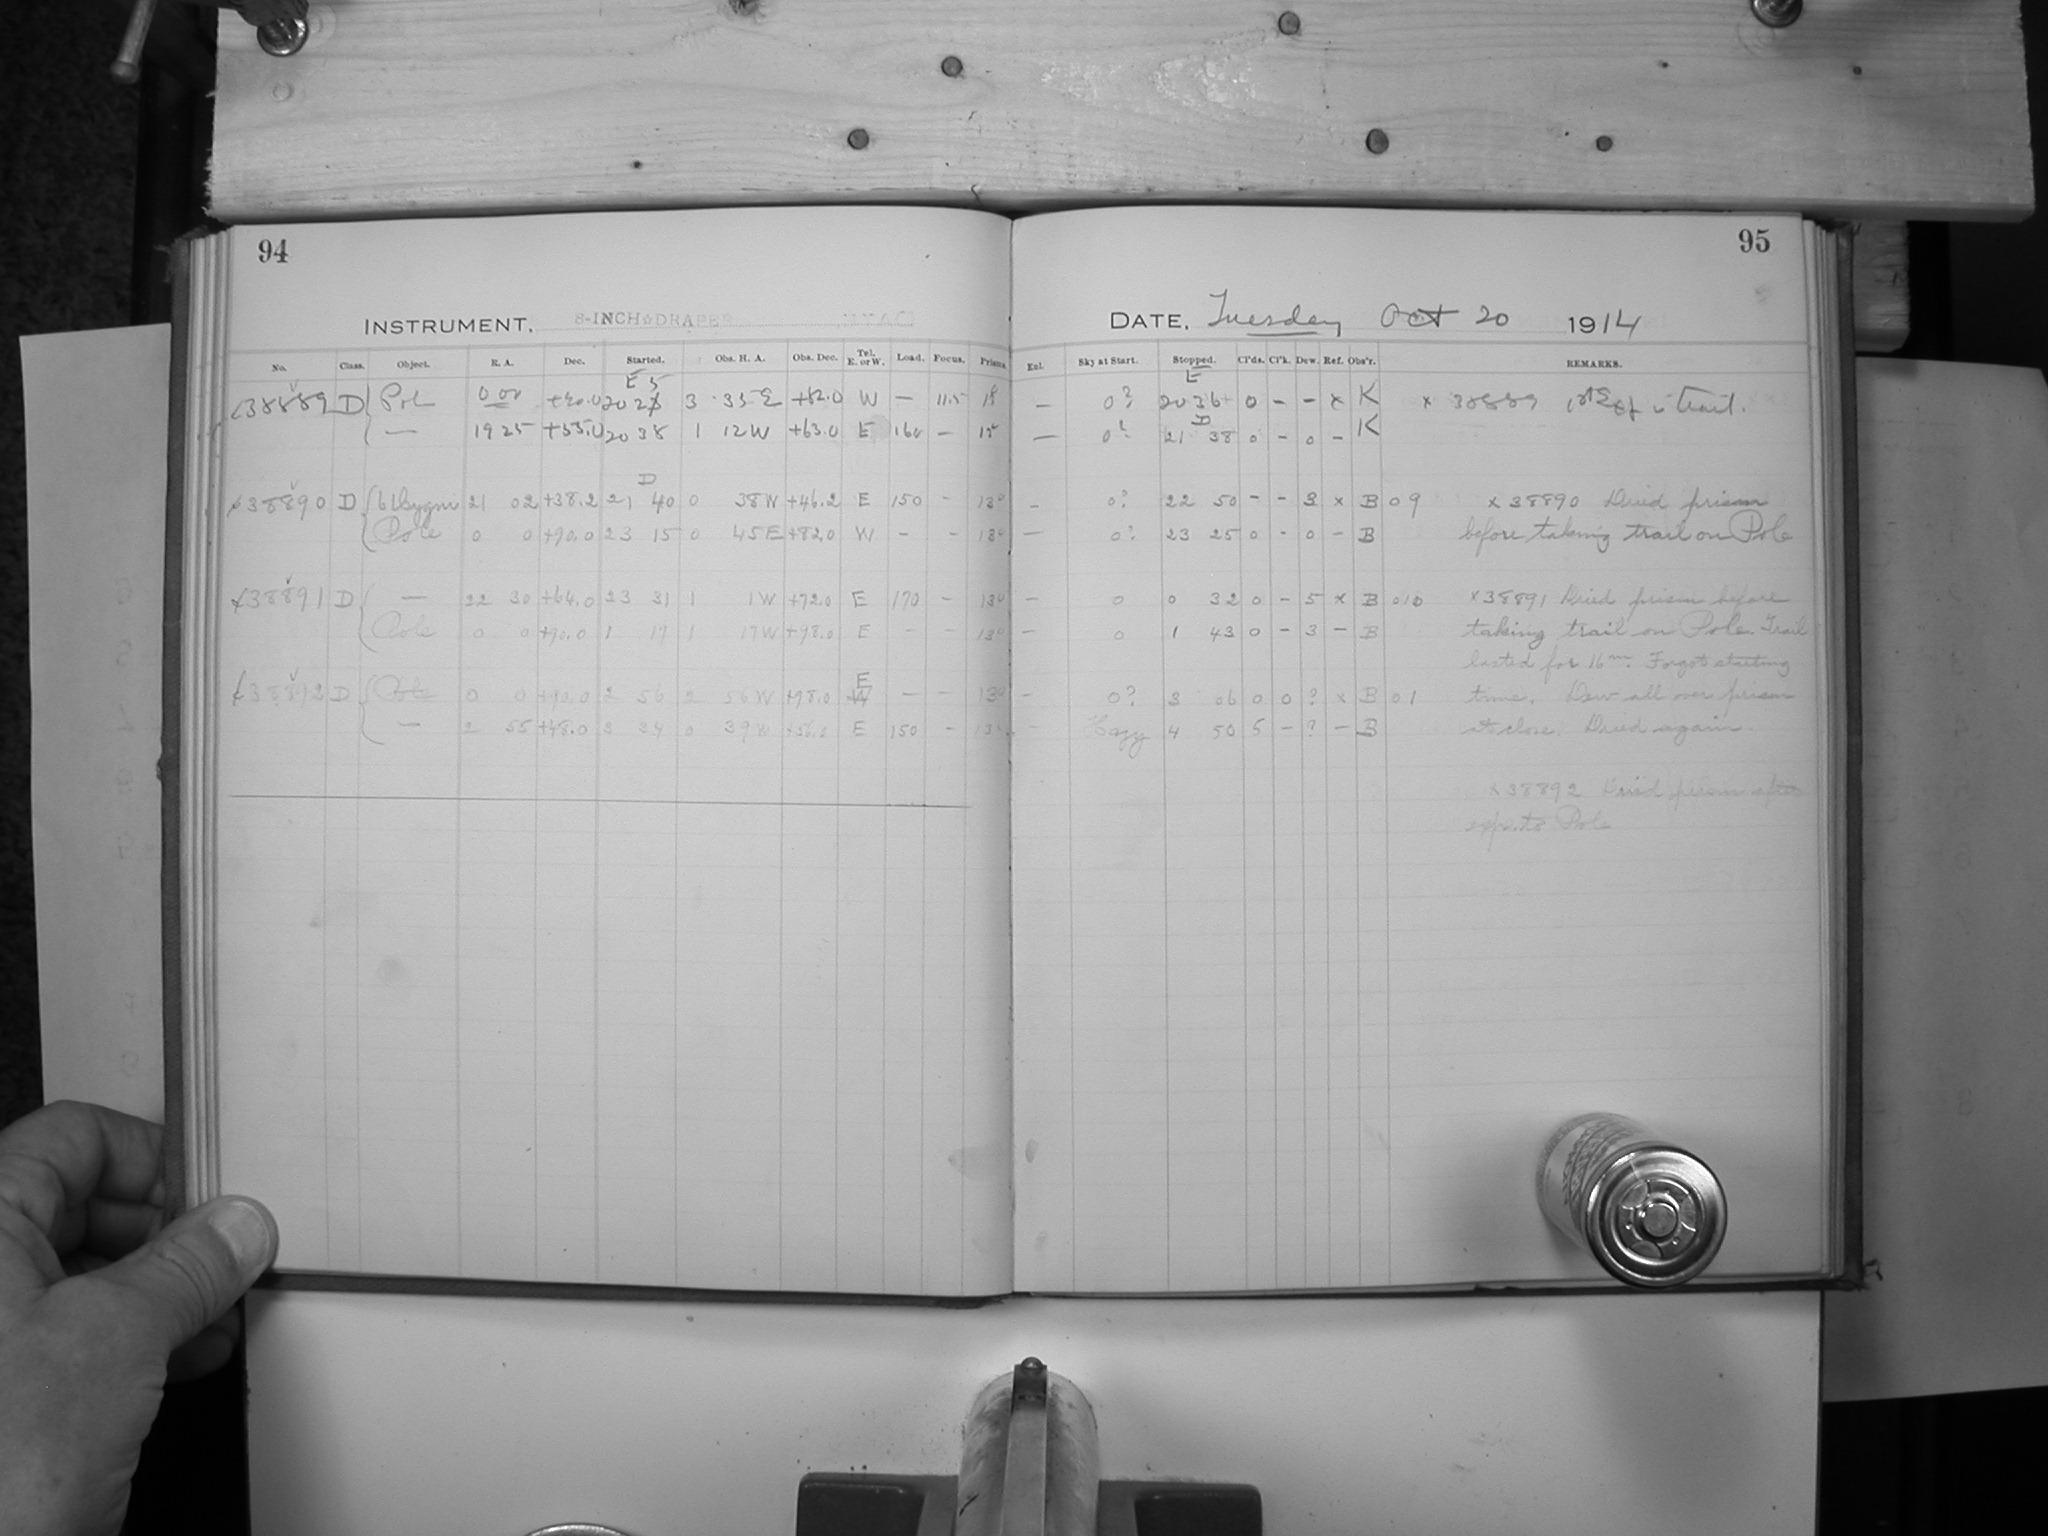 94
INSTRUMENT. 8-INCH DRAPER
No. Class. Object. R. A. Dec. Started. Obs. H. A. Obs. Dec. Tel. E. or W. Load. Focus. Prisms
E 5
38889 D Pol 0 00 +90.0 20 2 3 35 E +82.0 W — 11.5
— 19 25 +55.0 20 38 1 12 W +63.0 E 160 —
D
38890 D 61 Cygni 21 02 +38.2 21 40 0 38 W +46.2 E 150 - 13°
Pole 0 0 +90.0 23 15 0 45 E +82.0 W — - 13°
38891 D — 22 30 +64.0 23 31 1 1 W +72.0 E 170 - 13°
Pole 0 0 +90.0 1 17 1 17 W +98.0 E - - 13°
E
38892 D Pole 0 0 +90.0 2 56 2 56 W +98.0 W — — 13°
— 2 55 +48.0 3 34 0 39 W +56.0 E 150 - 13°
95
DATE. Tuesday Oct 20 1914
Enl. Sky at Start. Stopped. Cl'ds. Cl'k. Dew. Ref. Obs'r. REMARKS.
E
— 0? 20 36 0 - - x K x 38889 trail.
D
— 0? 21 38 0 - 0 - K
- 0? 22 50 - - 3 x B 09 x 38890 Dried prism
— 0? 23 25 0 - 0 - B before taking trail on Pole
— 0 0 32 0 - 5 x B 010 x 38891 Dried prism before
- 0 1 43 0 - 3 - B taking trail on Pole. Trail
lasted for 16m. Forgot starting
- 0? 3 06 0 0 ? x B 01 time. Dew all over prism
— Hazy 4 50 5 - ? - B at close. Dried again.
x 38892 Dried prism after
expo. to Pole